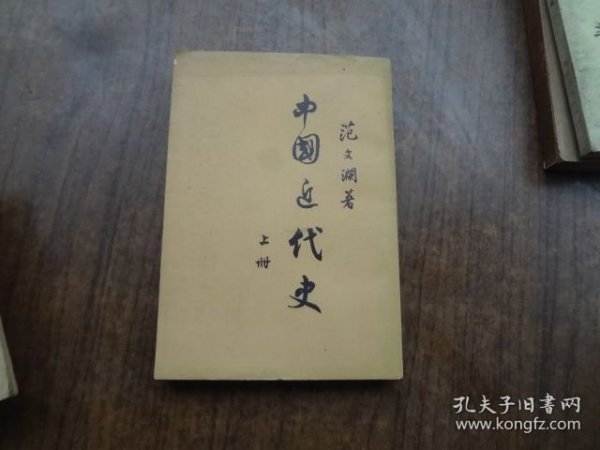 范文澜著
中國近代史
上册
孔夫子旧書网
www.kongfz.com